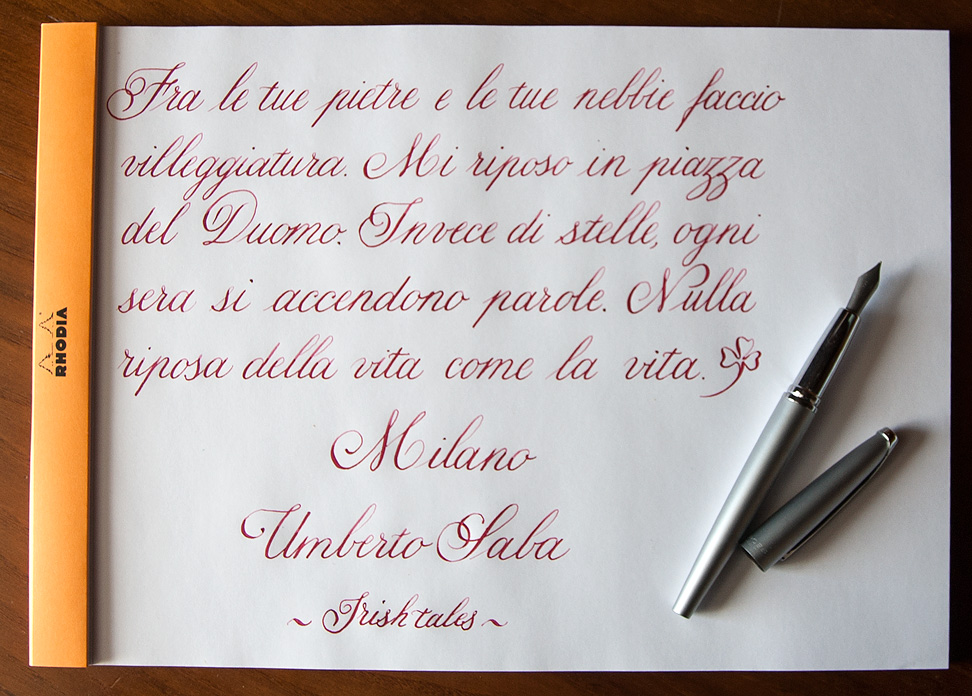 Fra le tue pietre e le tue nebbie faccio
villeggiatura. Mi riposo in piazza
del Duomo. Invece di stelle, ogni
sera si accendono parole. Nulla
riposa della vita come la vita.
Milano
Umberto Saba
~ Irish tales ~
RHODIA